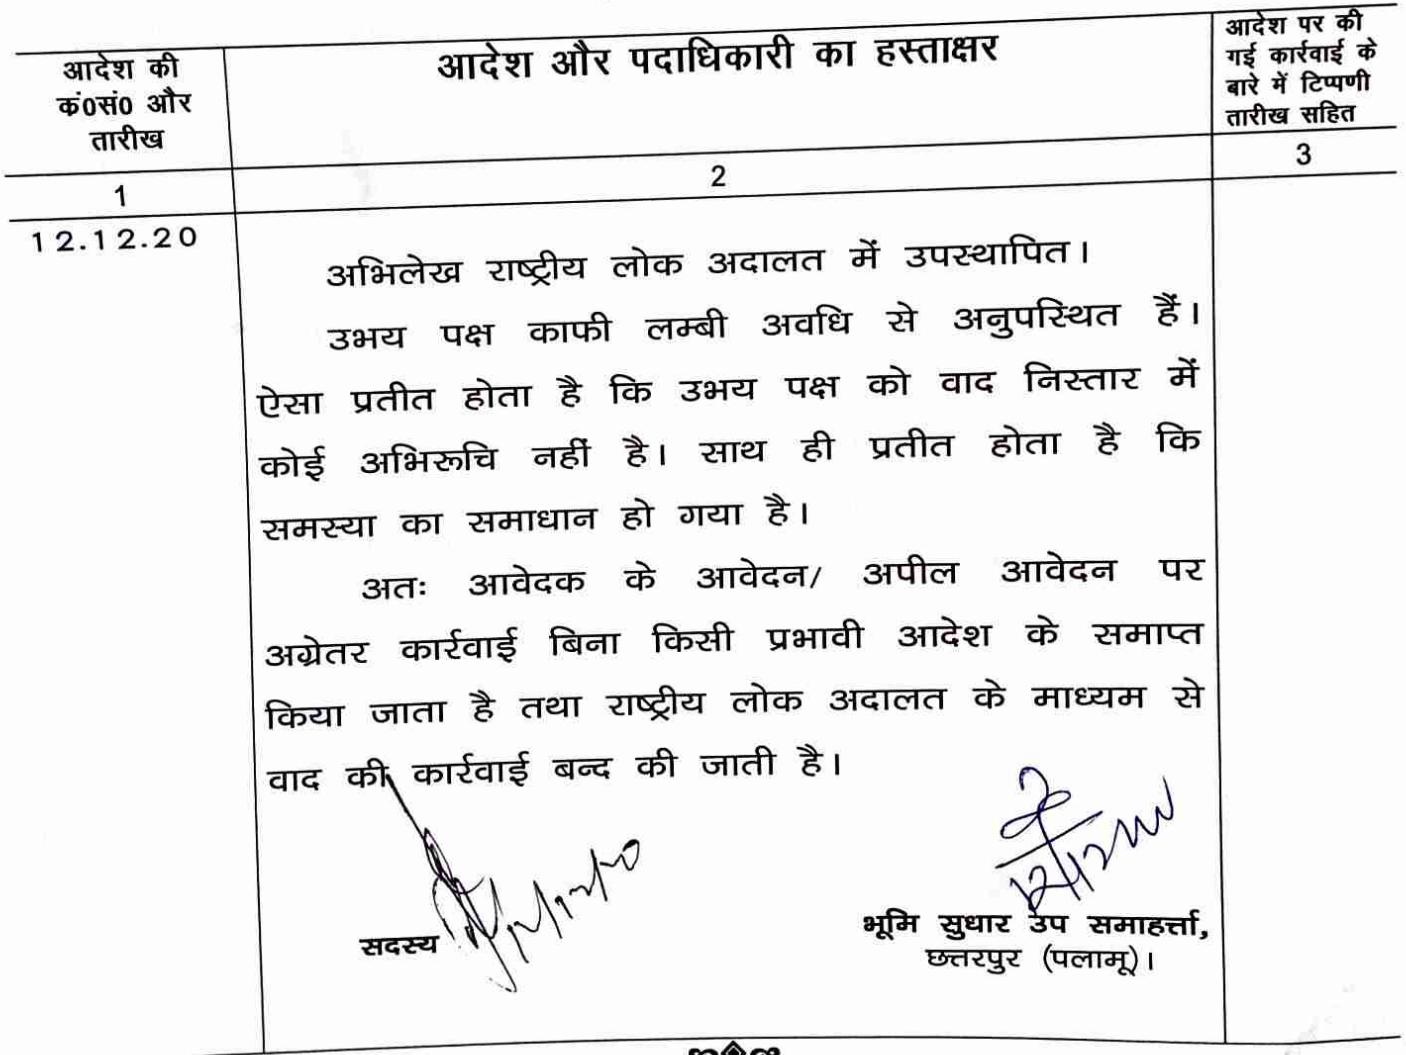 आदेश की
कं0सं0 और
तारीख
आदेश और पदाधिकारी का हस्ताक्षर
आदेश पर की
गई कार्रवाई के
बारे में टिप्पणी
तारीख सहित
1
2
3
12.12.20
अभिलेख राष्ट्रीय लोक अदालत में उपस्थापित।
उभय पक्ष काफी लम्बी अवधि से अनुपस्थित हैं।
ऐसा प्रतीत होता है कि उभय पक्ष को वाद निस्तार में
कोई अभिरूचि नहीं है। साथ ही प्रतीत होता है कि
समस्या का समाधान हो गया है।
अतः आवेदक के आवेदन/ अपील आवेदन पर
अग्रेतर कार्रवाई बिना किसी प्रभावी आदेश के समाप्त
किया जाता है तथा राष्ट्रीय लोक अदालत के माध्यम से
वाद की कार्रवाई बन्द की जाती है।
सदस्य
भूमि सुधार उप समाहर्त्ता,
छत्तरपुर (पलामू)।